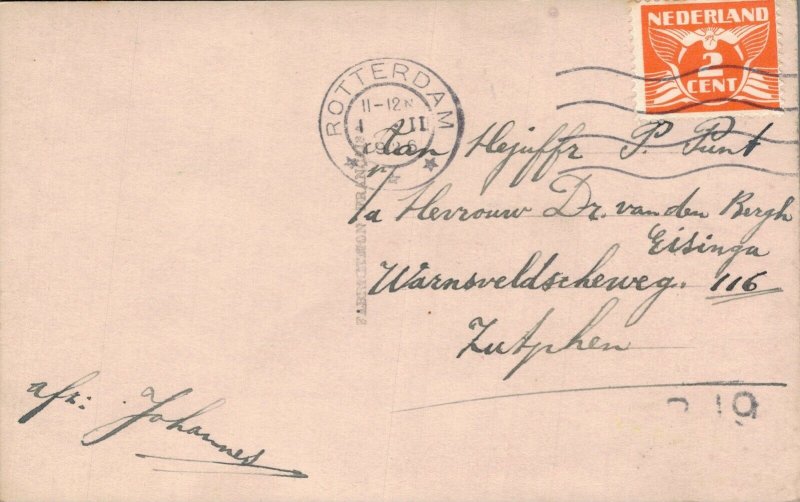 NEDERLAND
2
CENT
ROTTERDAM
11-12N
Aan Mejuffr P. Punt
p/a Mevrouw Dr. van den Bergh
Eisinga
Warnsveldscheweg. 116
Zutphen
afz: Johannes
FABRICATION FRANÇAISE